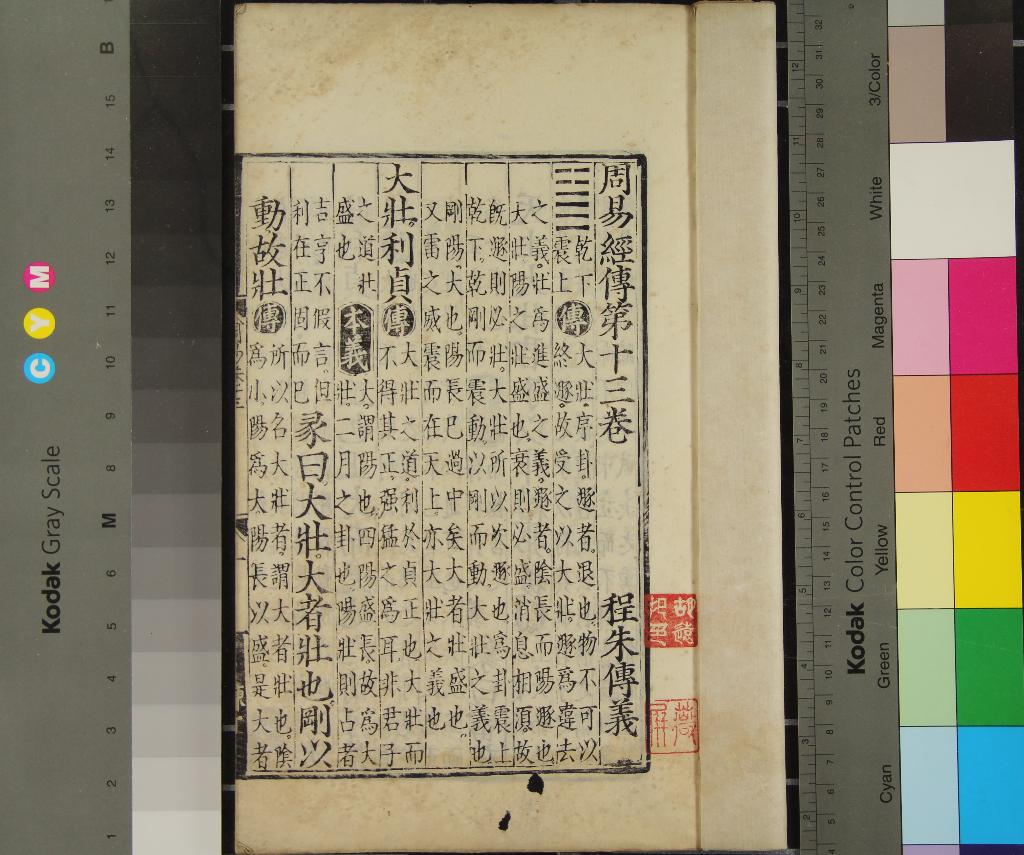 周易經傳第十三卷　程朱傳義
乾下
震上
傳
大壯序卦遯者退也物不可以
終遯故受之以大壯遯為違去
之義壯為進盛之義遯者陰長而陽遯也
大壯陽之壯盛也衰則必盛消息相須故
既遯則必壯大壯所以次遯也為卦震上
乾下乾剛而震動以剛而動大壯之義也
剛陽大也陽長已過中矣大者壯盛也
又雷之威震而在天上亦大壯之義也
大壯利貞
傳
大壯之道利於貞正也大壯而
不得其正強猛之為耳非君子
之道壯
盛也
本義
大謂陽也四陽盛長故為大
壯二月之卦也陽壯則占者
吉亨不假言但
利在正固而已
彖曰大壯大者壯也剛以
動故壯
傳
所以名大壯者謂大者壯也陰
為小陽為大陽長以盛是大者
Kodak Gray Scale
C Y M
B 15 14 13 12 11 10 9 8 M 6 5 4 3 2 1
Kodak Color Control Patches
3/Color
White
Magenta
Red
Yellow
Green
Cyan